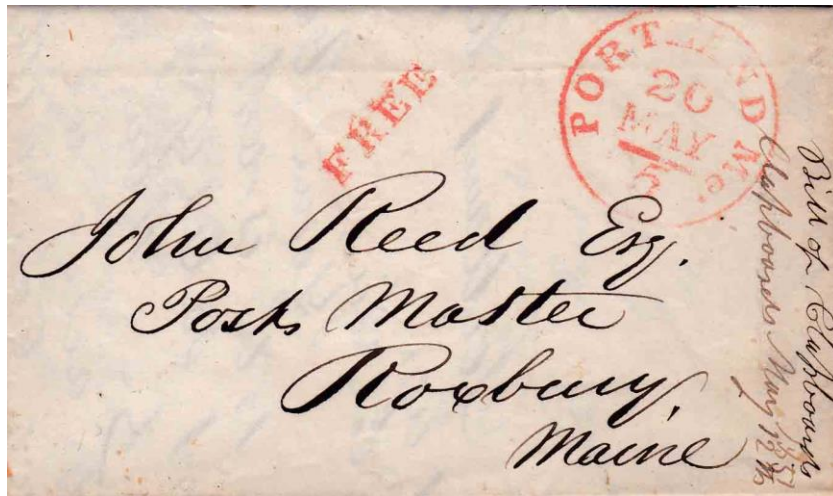 FREE
PORTLAND Me.
20
MAY
John Reed Esq.
Post Master
Roxbury,
Maine
Bill of Clapboards
Clapboards May